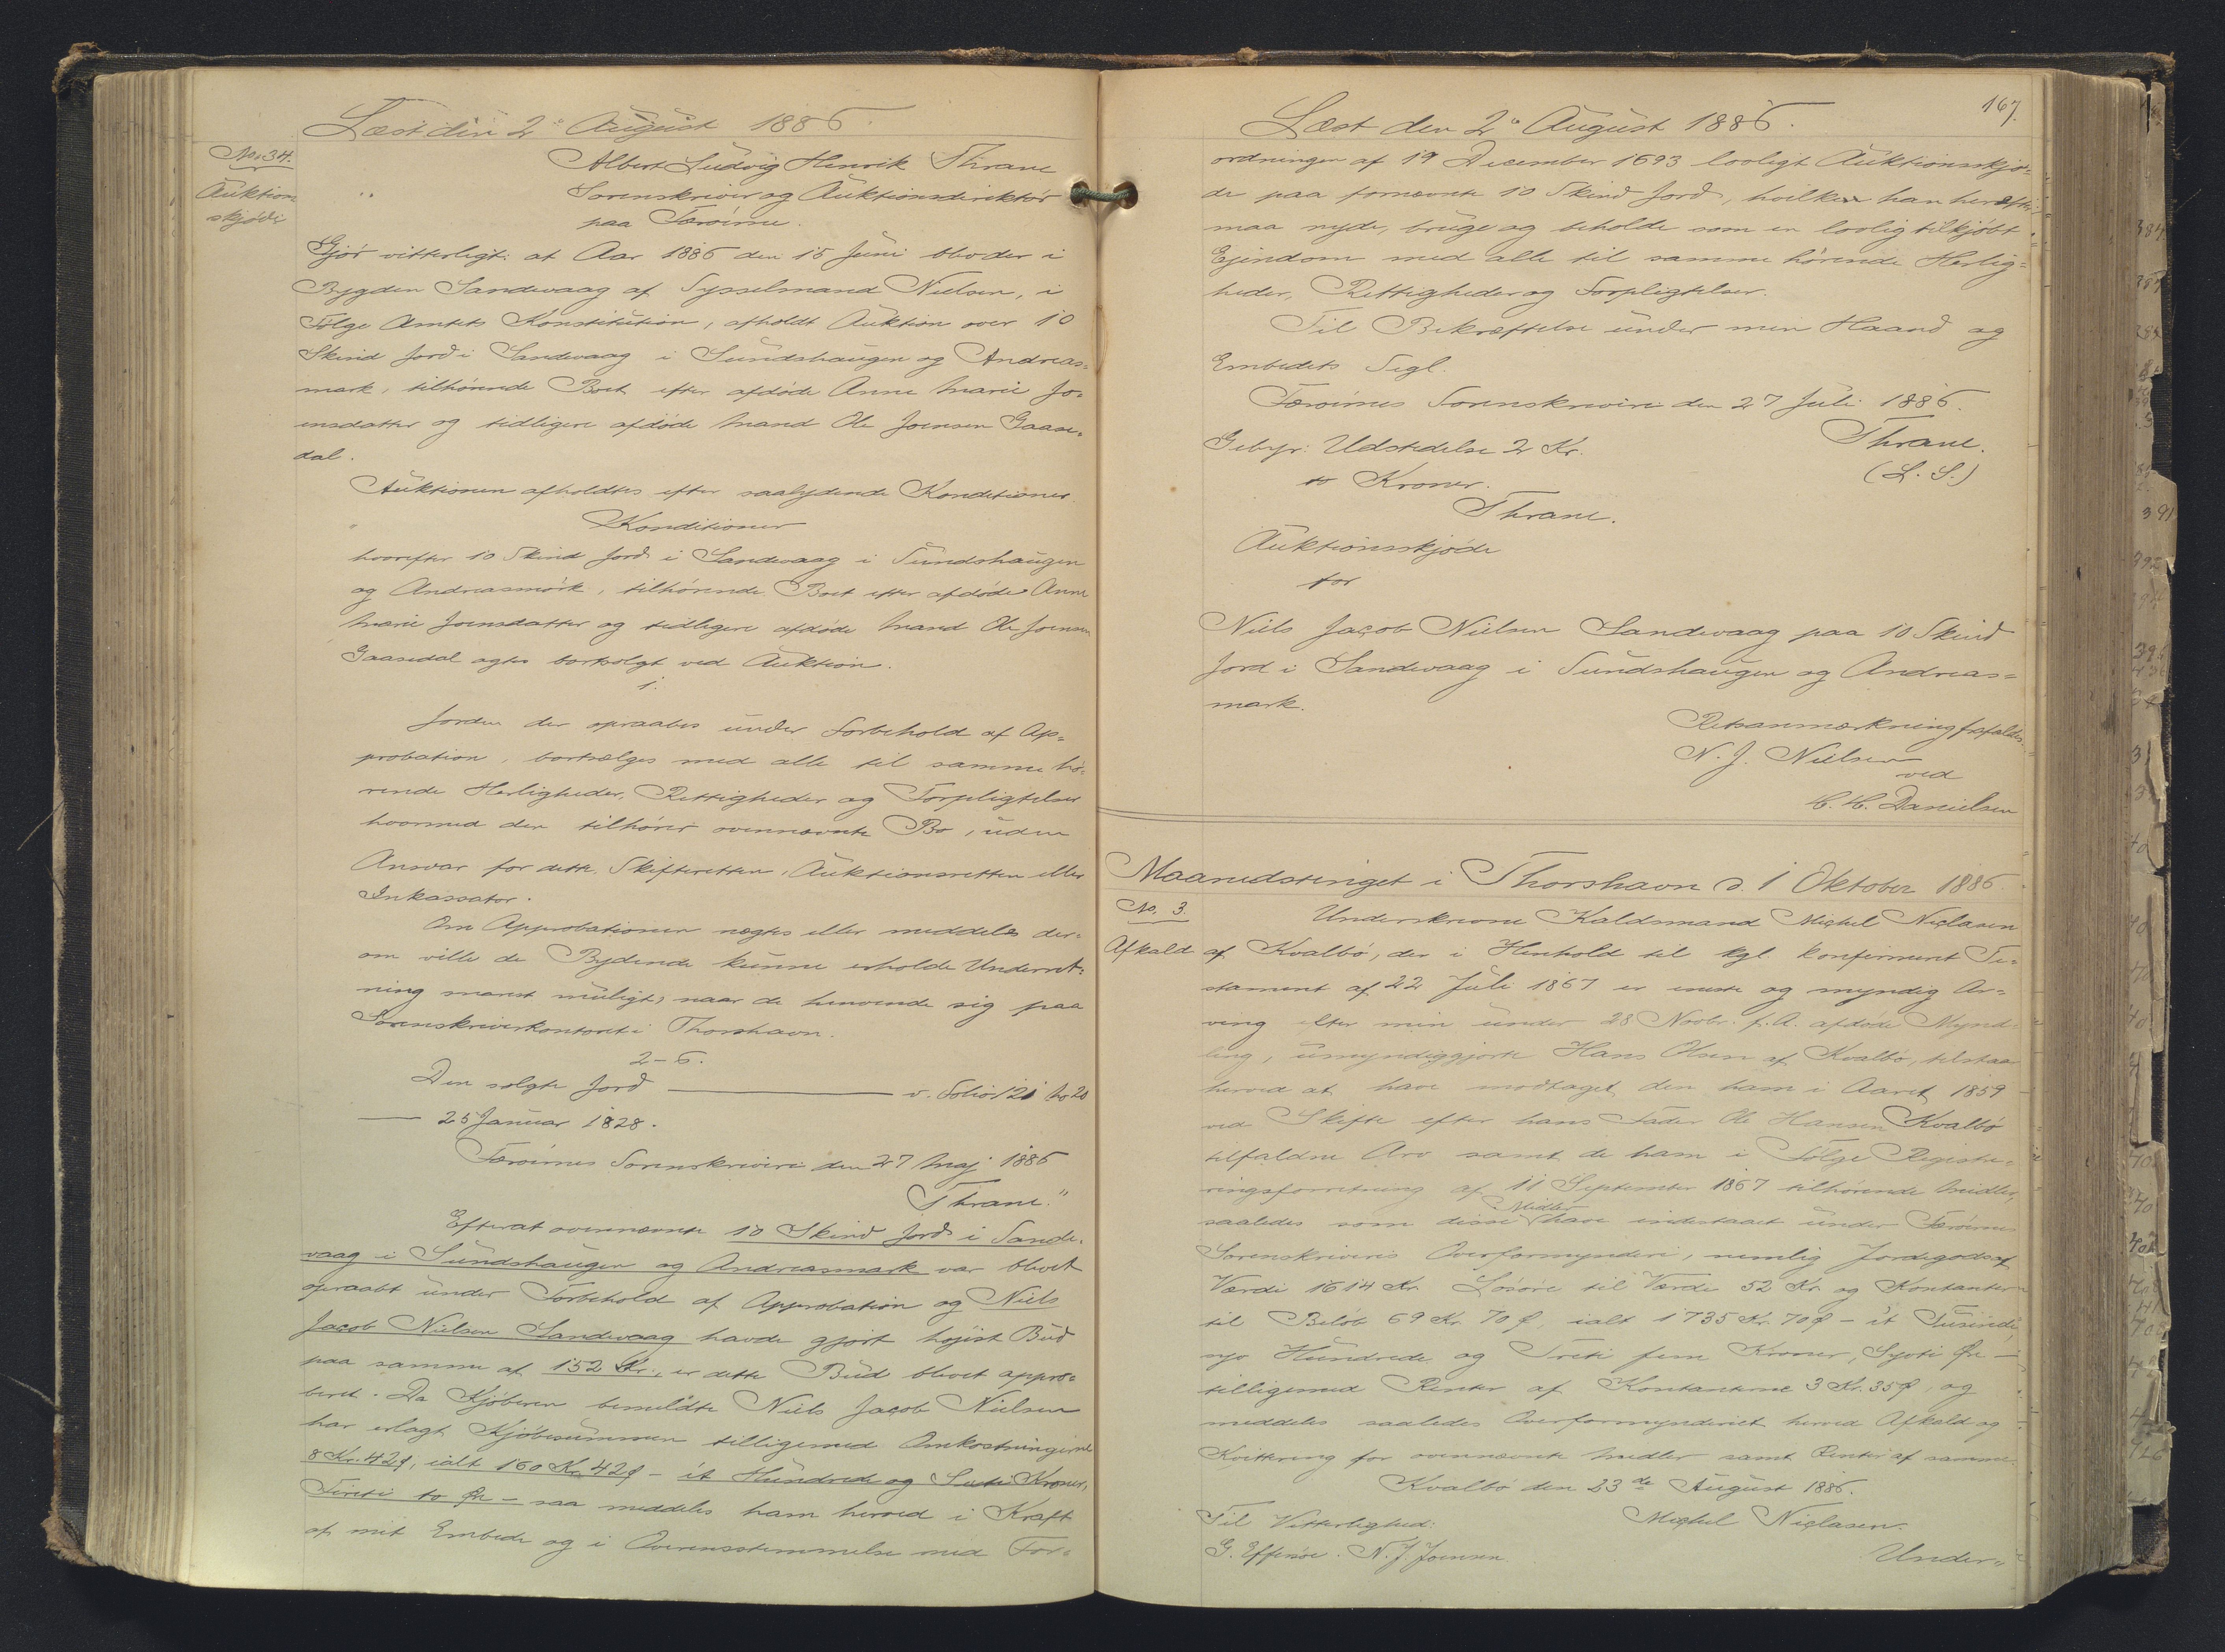 Læst den 2 August 1886.
No. 34.
Auktions
skjøde
Albert Ludvig Henrik Thrane
Sorenskriver og Auktionsdirektør
paa Færøerne.
Gjør vitterligt: at Aar 1886 den 15 Juni blev der i
Bygden Sandevaag af Sysselmand Nielsen, i
Følge Amtets Konstitution, afholdt Auktion over 10
Skind Jord i Sandevaag i Sundshaugen og Andreas=
mark, tilhørende Boet efter afdøde Anne Marie Jo=
ensdatter og tidligere afdøde Mand Ole Joensen Gaase=
dal.
Auktionen afholdtes efter saalydende Konditioner.
Konditioner
hvorefter 10 Skind Jord i Sandevaag i Sundshaugen
og Andreasmørk, tilhørende Boet efter afdøde Anne
Marie Joensdatter og tidligere afdøde Mand Ole Joensen
Gaasedal agtes bortsolgt ved Auktion.
1.
Jorden der opraabes under Forbehold af Ap=
probation, bortsælges med alle til samme hø=
rende Herligheder, Rettigheder og Forpligtelser
hvormed den tilhører ovennævnte Bo, uden
Ansvar for dette, Skifteretten, Auktionsretten eller
Inkassator.
Om Approbationen nægtes eller meddeles der=
om ville de Bydende kunne erholde Underret=
ning snarest muligt, naar de henvende sig paa
Sorenskriverkontoret i Thorshavn.
2-6.
Den solgte Jord ——— v. Folio 121 No 20
— 25 Januar 1828.
Færøernes Sorenskriveri den 27 Maj 1886
Thrane."
Efterat ovennævnte 10 Skind Jord i Sande=
vaag i Sundshaugen og Andreasmark var blevet
opraabt under Forbehold af Approbation og Niels
Jacob Nielsen Sandevaag havde gjort højest Bud
paa samme af 152 Kr., er dette Bud blevet appro=
beret. Da Kjøberen bemeldte Niels Jacob Nielsen
har erlagt Kjøbesummen tilligemed Omkostningerne
8 Kr. 42 Ø, ialt 160 Kr. 42 Ø - ét Hundrede og Sexti Kroner,
Fireti to Øre - saa meddeles ham herved i Kraft
af mit Embede og i Overensstemmelse med For=
167.
Læst den 2 August 1886.
ordningen af 19 December 1693 lovligt Auktionsskjø=
de paa fornævnte 10 Skind Jord, hvilken han herefter
maa nyde, bruge og beholde som en lovlig tilkjøbt
Ejendom med alle til samme hørende Herlig=
heder, Rettigheder og Forpligtelser.
Til Bekræftelse under min Haand og
Embedets Segl.
Færøernes Sorenskriveri den 27 Juli 1886.
Thrane.
(L. S.)
Gebyr: Udstedelse 2 Kr.
to Kroner.
Thrane.
Auktionsskjøde
for
Niels Jacob Nielsen Sandevaag paa 10 Skind
Jord i Sandevaag i Sundshaugen og Andreas=
mark.
Retsanmærkning frafaldes.
N. J. Nielsen
ved
H. H. Danielsen
Maanedstinget i Thorshavn d. 1 Oktober 1886.
No. 3.
Afkald
Underskrevne Kaldsmand Michel Niclasen
af Kvalbø, der i Henhold til kgl. konfirmeret Te=
stament af 22 Juli 1867 er eneste og myndig Ar=
ving efter min under 28 Novbr. f. A. afdøde Mynd=
ling, umyndiggjorte Hans Olsen af Kvalbø, tilstaar
herved at have modtaget den ham i Aaret 1859
ved Skifte efter hans Fader Ole Hansen Kvalbø
tilfaldne Arv samt de ham i Følge Registre=
ringsforretning af 11 September 1867 tilhørende Midler,
saaledes som disse Midler have indestaaet under Færøernes
Sorenskriveris Overformynderi, nemlig Jordegods af
Værdi 1614 Kr. Løsøre til Værdi 52 Kr. og Kontanter
til Beløb 69 Kr. 70 Ø, ialt 1735 Kr. 70 Ø - ét Tusinde,
syv Hundrede og Treti fem Kroner, Syvti Øre -
tilligemed Renter af Kontanterne 3 Kr. 35 Ø, og
meddeles saaledes Overformynderiet herved Afkald og
Kvittering for ovennævnte Midler samt Renter af samme.
Kvalbø den 23de August 1886.
Michel Niclasen.
Til Vitterlighed:
G. Effersøe. N. J. Joensen
Under=